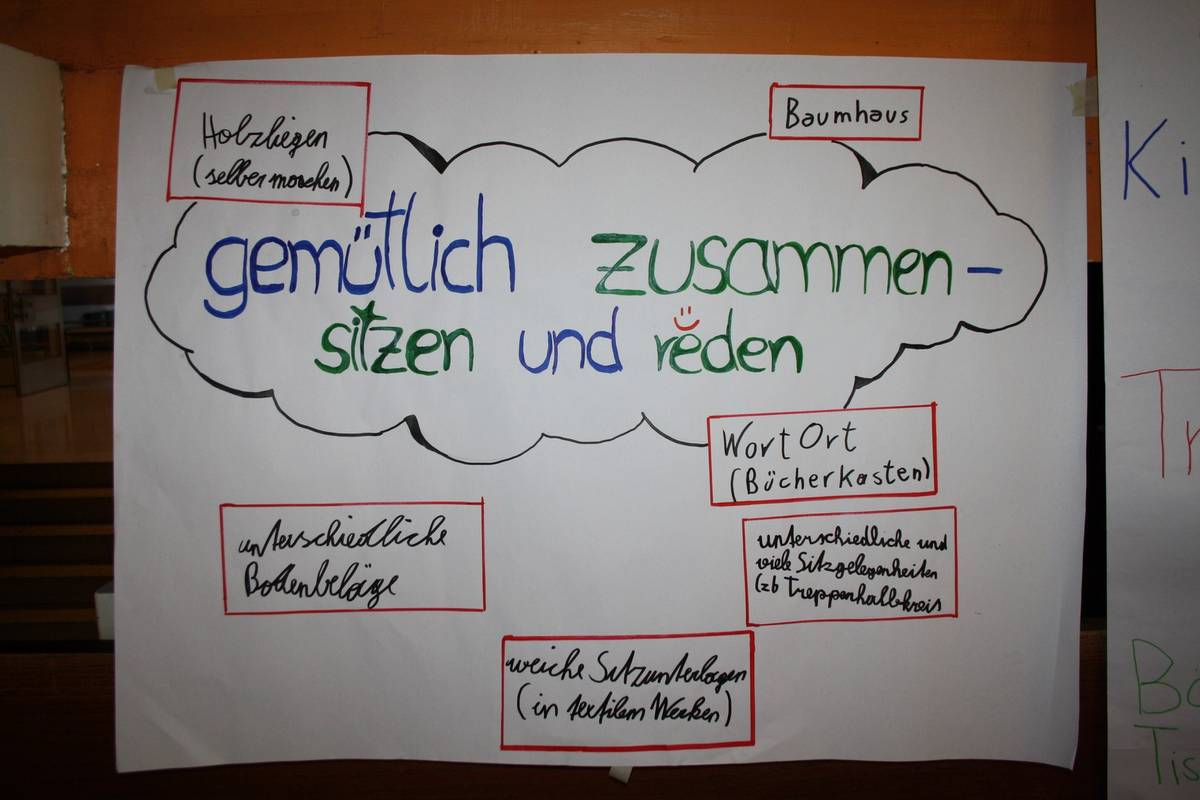 Holzliegen
(selber machen)
Baumhaus
gemütlich zusammen-
sitzen und reden
Wort Ort
(Bücherkasten)
unterschiedliche
Bodenbeläge
unterschiedliche und
viele Sitzgelegenheiten
(zb Treppenhalbkreis
weiche Sitzunterlagen
(in textilem Werken)
Ki
Tr
Bo
Tis